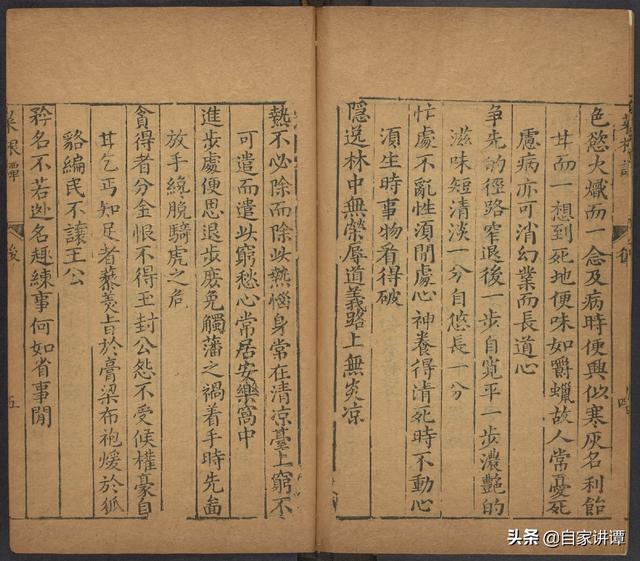 色慾火熾而一念及病時便興似寒灰名利飴
甘而一想到死地便味如嚼蠟故人常憂死
慮病亦可消幻業而長道心
争先的徑路窄退後一步自寬平一步濃艷的
滋味短清淡一分自悠長一分
忙處不亂性湏閒處心神養得清死時不動心
湏生時事物看得破
隱逸林中無榮辱道義路上無炎凉
熱不必除而除此熱惱身常在清凉臺上窮不
可遣而遣此窮愁心常居安樂窩中
進步處便思退步庶免觸藩之禍着手時先啚
放手纔脫騎虎之危
貪得者分金恨不得玉封公怨不受候權豪自
甘乞丐知足者藜羹旨於膏梁布袍煖於狐
貉編民不讓王公
矜名不若迯名趣練事何如省事閒
菜根譚 後 五
头条 @自家讲谭